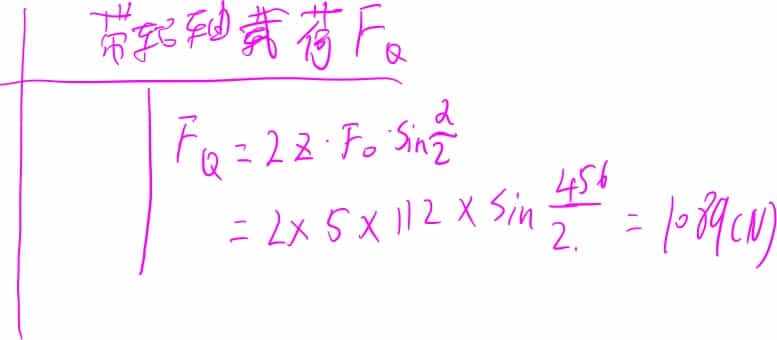 带轮轴载荷 F_Q
F_Q = 2 z · F_0 · sin α/2
= 2 × 5 × 112 × sin 156/2. = 1089 (N)